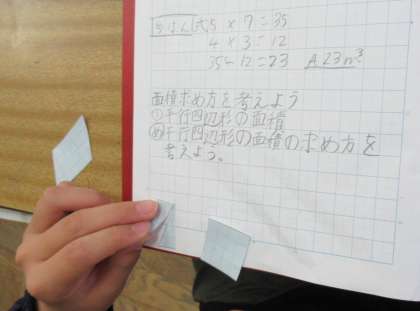 きほん 式 5 × 7 = 35
4 × 3 = 12
35-12=23 A 23m³
面積求め方を考えよう
①平行四辺形の面積
め平行四辺形の面積の求め方を
考えよう。